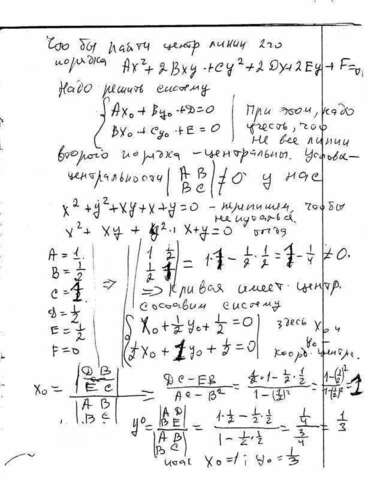 Что бы найти центр линии 2го
порядка Ax²+2Bxy+Cy²+2Dx+2Ey+F=0,
Надо решить систему
{ Ax₀+By₀+D=0
Bx₀+Cy₀+E=0 | При этом, надо
учесть, что
не все линии
второго порядка - центральны. Услови-
центральности | A B
B C | ≠0 у нас
x²+y²+xy+x+y=0 - перепишем, чтобы
не путаться.
x²+xy+y²+x+y=0
A=1
B=1/2
C=1
D=1/2
E=1/2
F=0
⇒ | 1 1/2
1/2 1 | = 1·1-1/2·1/2=1-1/4≠0.
⇒ Кривая имеет центр.
составим систему
{ x₀+1/2y₀+1/2=0
1/2x₀+1y₀+1/2=0 | здесь x₀ и
y₀ -
коорд. центра.
x₀= |D B
E C| / |A B
B C| = (DC-EB)/(AC-B²) = (1/2·1-1/2·1/2)/(1-(1/2)²) = (1-(1/2)²)/(1-(1/2)²)=1
y₀= |A D
B E| / |A B
B C| = (1·1/2-1/2·1/2)/(1-1/2·1/2) = (1/4)/(3/4) = 1/3
x₀=1; y₀=1/3